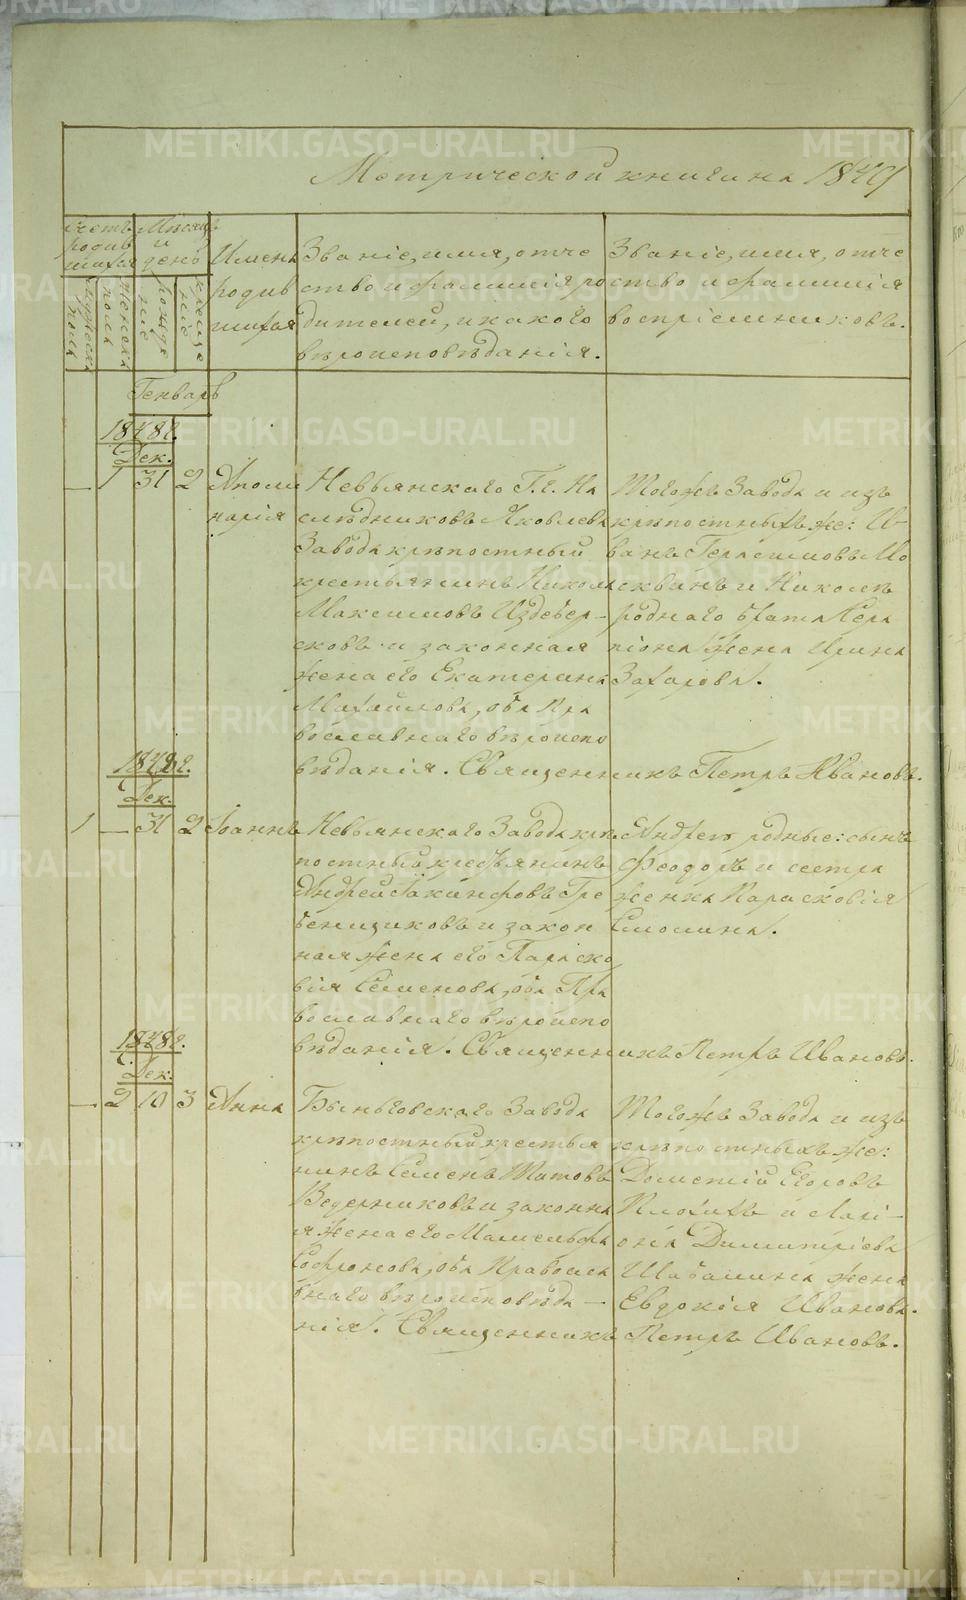 Метрической книги на 1849
Счетъ родив шихся
Мѣсяцъ и день
мужеска пола
женска пола
рожде ніе
креще ніе
Имена
родив
шихся
Званіе, имя, отче
ство и фамилія ро
дителей, и какого
вѣроисповѣданія.
Званіе, имя, отче
ство и фамилія
воспріемниковъ.
Генварь
1848 г.
Дек.
— 1 31 2
Аполи
нарія
Невьянскаго Г. г. На
слѣдниковъ Яковлева
Завода крѣпостный
крестьянинъ Никола
Максимовъ
сковъ и законная
жена его Екатерина
Михайлова, оба Пра
вославнаго вѣроиспо
вѣданія. Священникъ Петръ Ивановъ.
Тогожъ Завода и изъ
крѣпостныхъ же: И-
ванъ Герасимовъ Мо
сквинъ и Николаѣ
роднаго брата Сера
піона жена Ирина
Захарова.
1848 г.
Дек.
1 — 31 2
Іоаннъ
Невьянскаго Завода крѣ
постный кресьянинъ
Андрей Іакинфовъ Гре
бенщиковъ и закон
ная жена его Параско
вія Семенова, оба Пра
вославнаго вѣроиспо
вѣданія. Священникъ Петръ Ивановъ.
Андрея родные: сынъ
Феодоръ и сестра
женка Парасковія
Смолина.
1848 г.
Дек.
— 2 10 3
Анна
Быньговскаго Завода
крѣпостный крестья
нинъ Семенъ Титовъ
Ведерниковъ и законна
я жена его Мамельфа
Софронова, оба Правосла
внаго вѣроисповѣда —
нія. Священникъ Петръ Ивановъ.
Тогожъ Завода и изъ
крѣпостныхъ же:
Дометій Егоровъ
Плохихъ и Лари —
она Димитріева
Шабалина жена
Евдокія Иванова.
METRIKI.GASO-URAL.RU